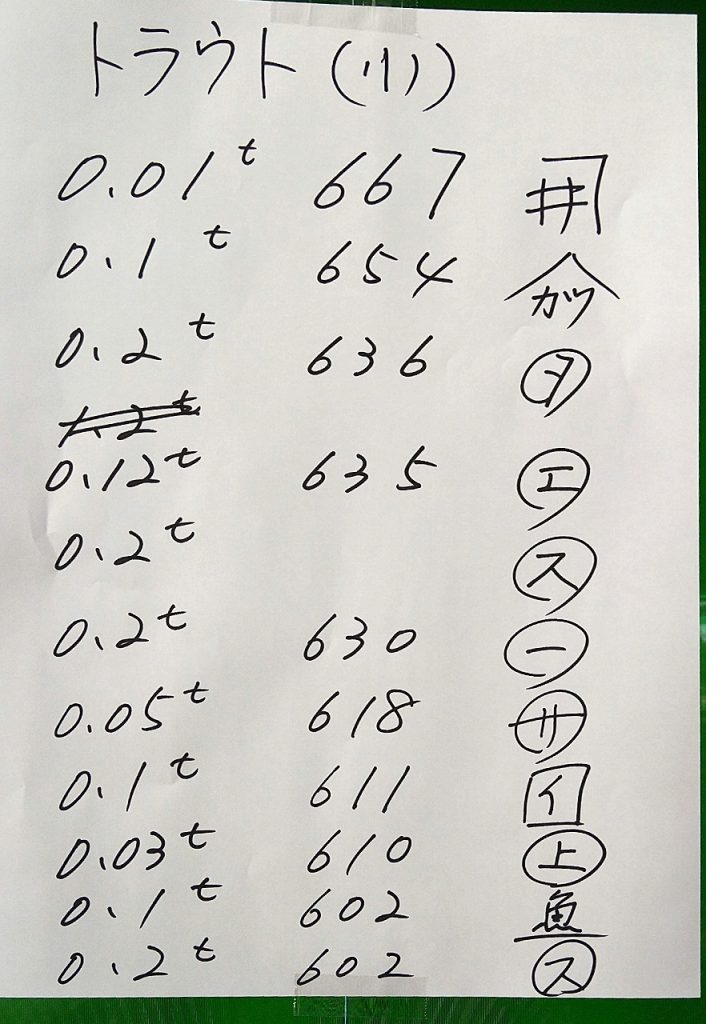 トラウト(小)
0.01t 667 井
0.1t 654 カツ
0.2t 636 タ
1.2t
0.12t 635 エ
0.2t ス
0.2t 630 一
0.05t 618 サ
0.1t 611 イ
0.03t 610 上
0.1t 602 魚
0.2t 602 ス